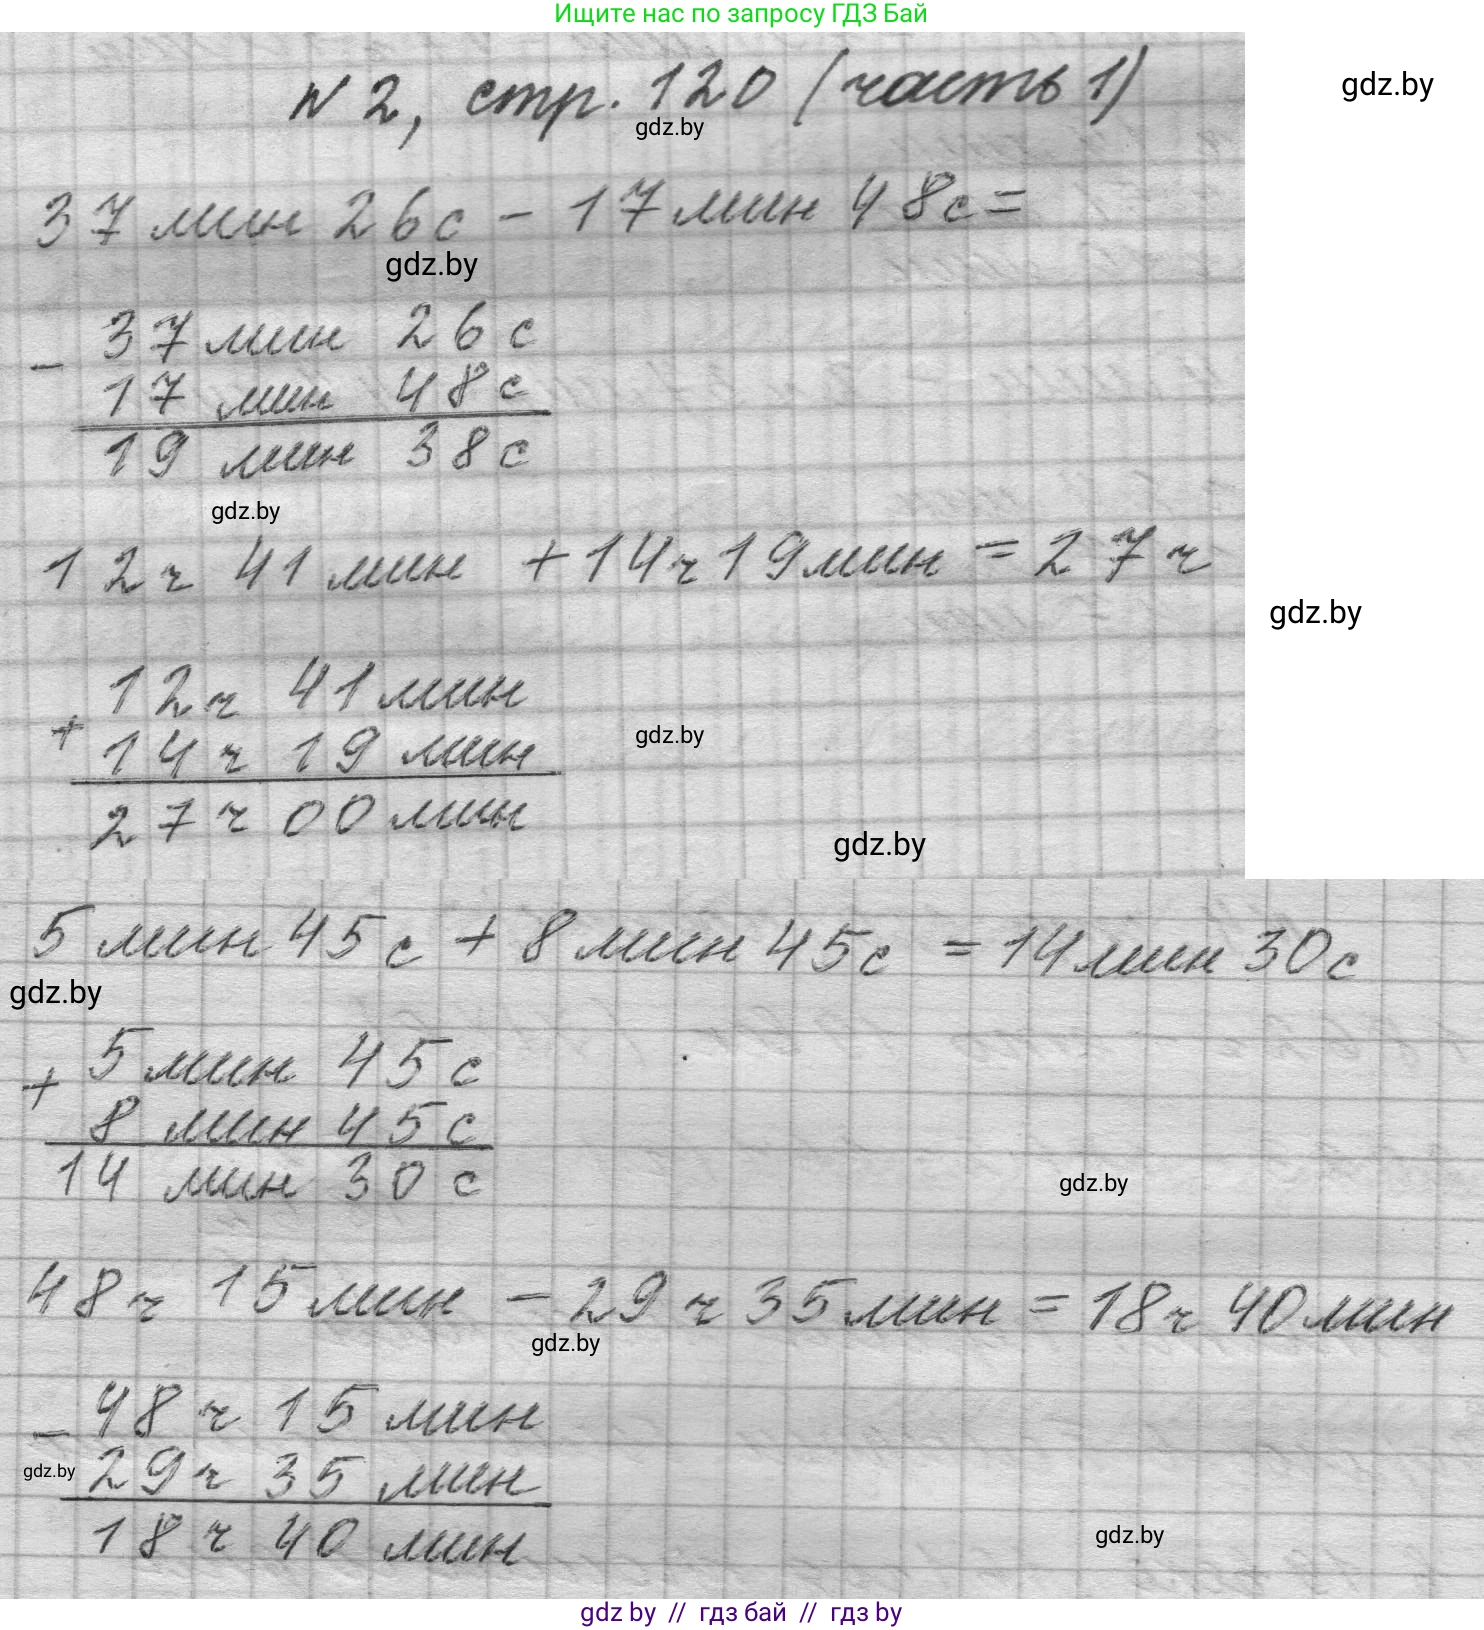 Ищите нас по запросу ГДЗ Бай
N 2, стр. 120 (часть 1)
gdz.by
gdz.by
37 мин 26 с - 17 мин 48 с =
gdz.by
- 37 мин 26 с
17 мин 48 с
19 мин 38 с
gdz.by
12 ч 41 мин + 14 ч 19 мин = 27 ч
gdz.by
12 ч 41 мин
+ 14 ч 19 мин
gdz.by
27 ч 00 мин
gdz.by
5 мин 45 с + 8 мин 45 с = 14 мин 30 с
gdz.by
+ 5 мин 45 с
8 мин 45 с
14 мин 30 с
gdz.by
48 ч 15 мин - 29 ч 35 мин = 18 ч 40 мин
gdz.by
- 48 ч 15 мин
gdz.by
29 ч 35 мин
18 ч 40 мин
gdz.by
gdz by // гдз бай // гдз by